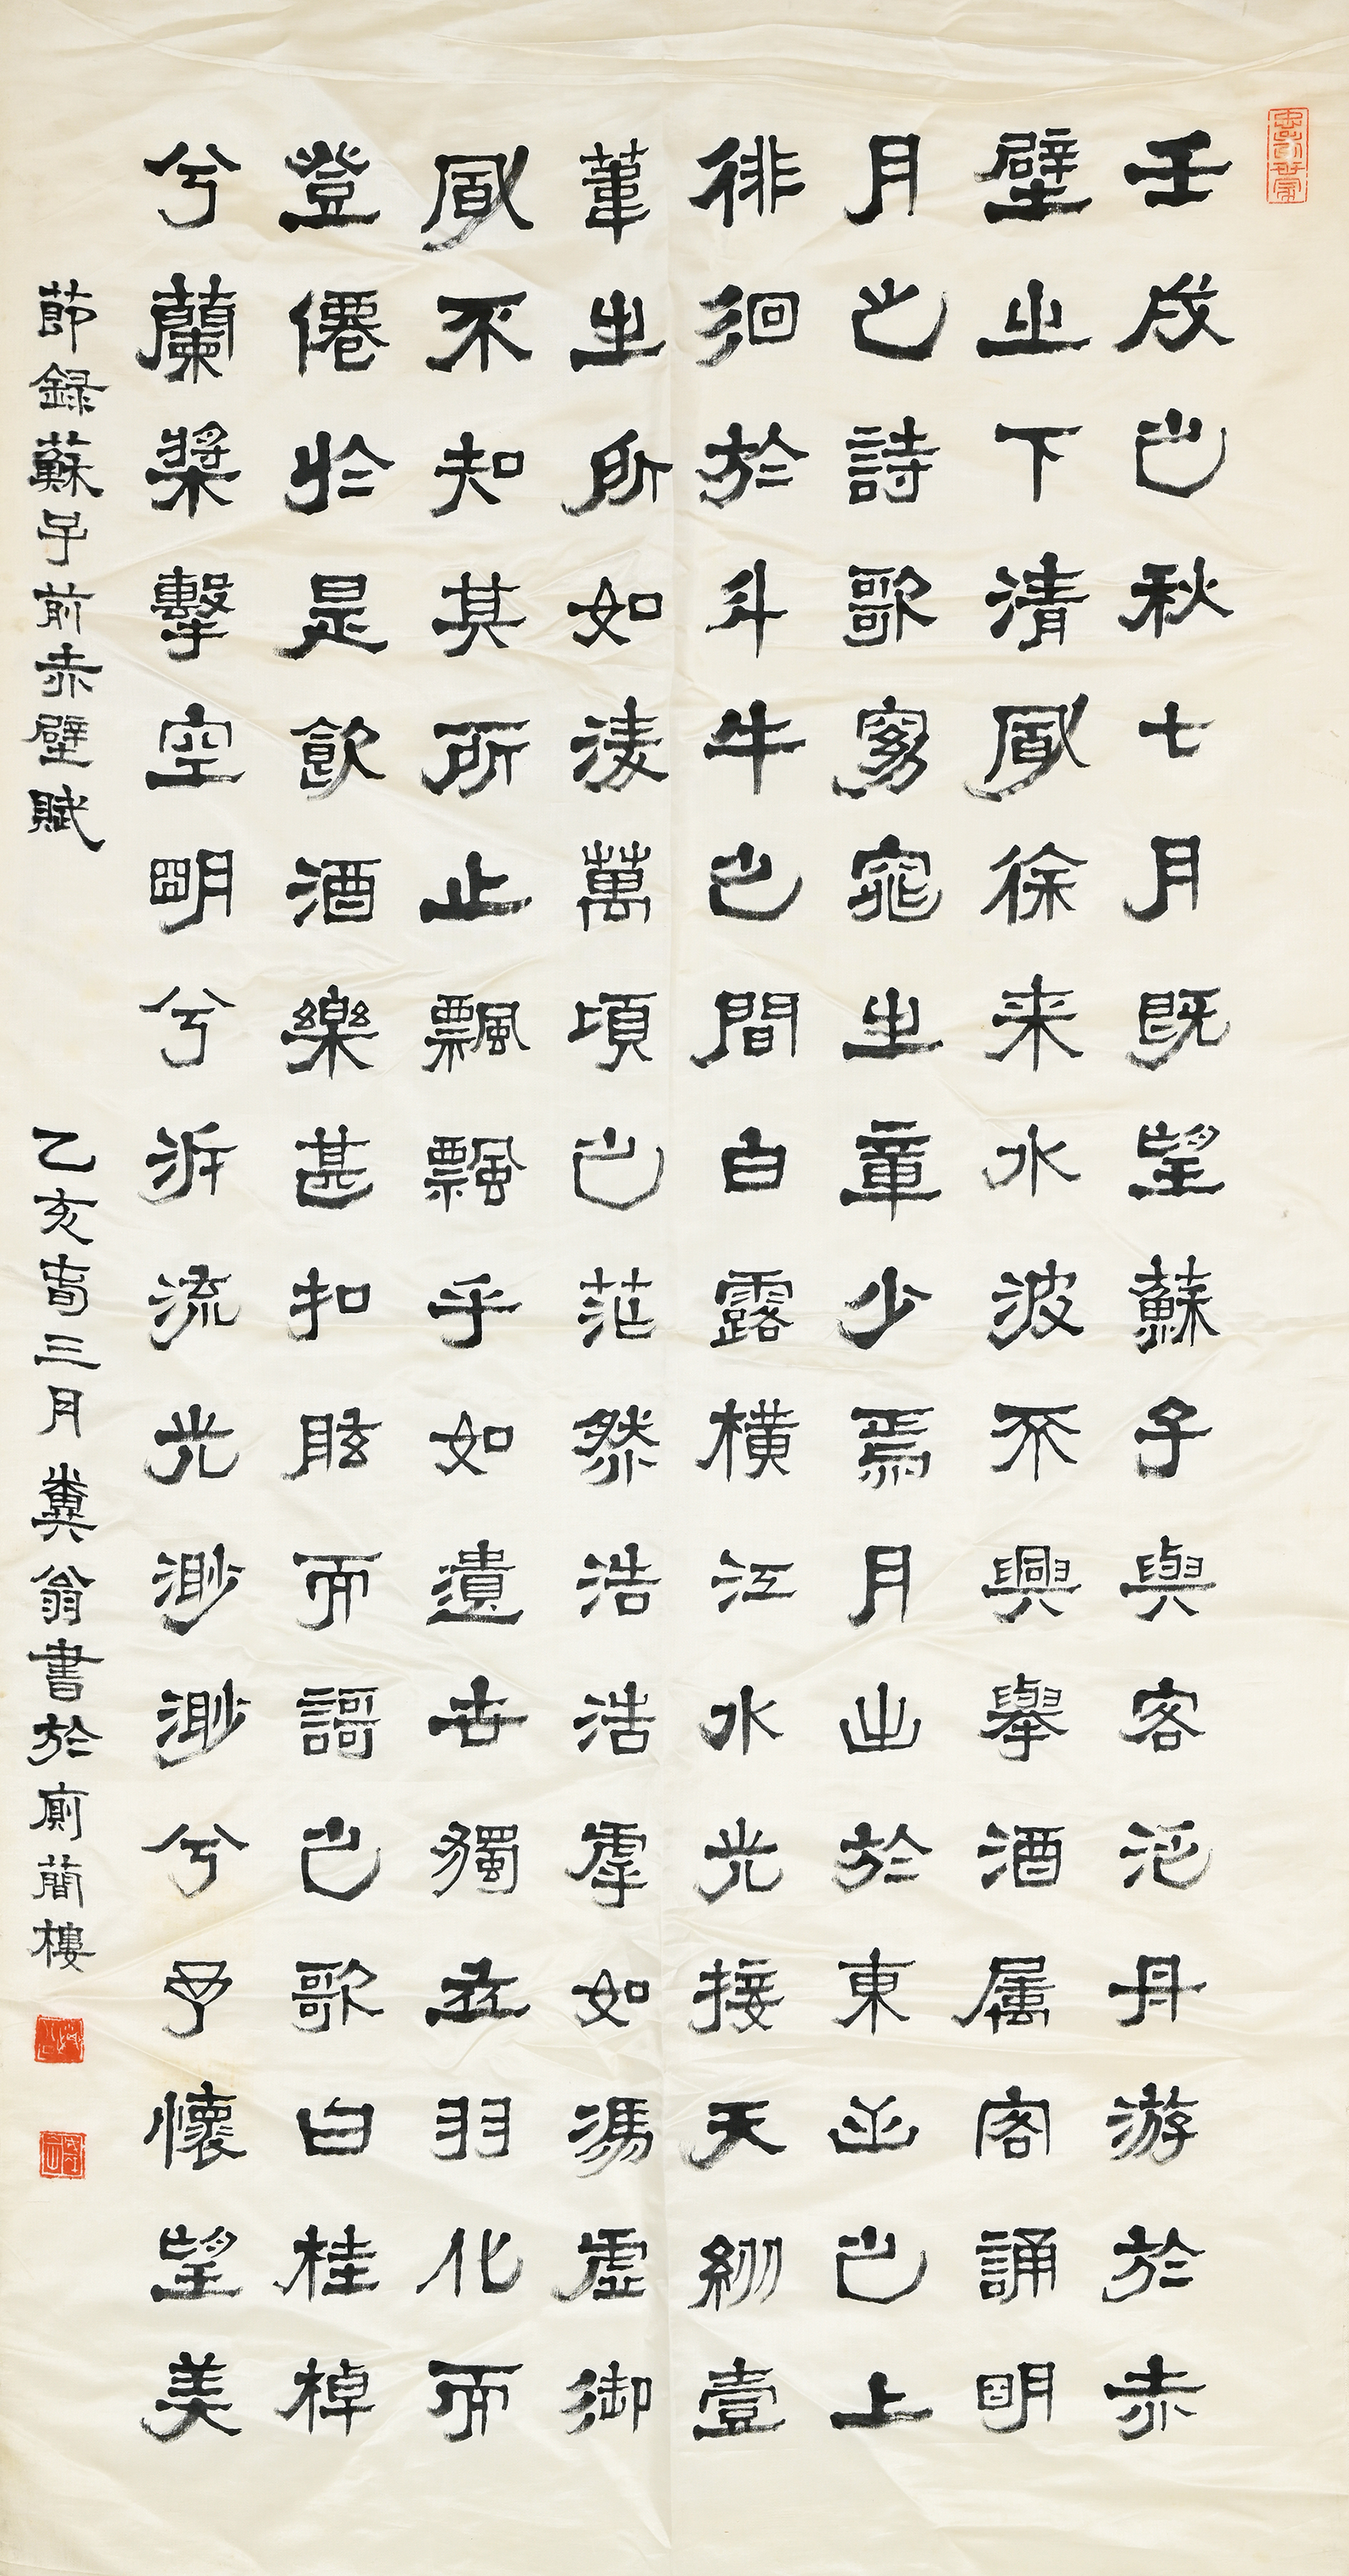 壬戌之秋七月既望蘇子與客泛舟游於赤
壁之下清風徐来水波不興舉酒属客誦明
月之詩歌窈窕之章少焉月出於東山之上
徘徊於斗牛之間白露橫江水光接天縱壹
葦之所如淩萬頃之茫然浩浩虖如馮虛御
風不知其所止飄飄乎如遺世獨立羽化而
登僊於是飲酒樂甚扣舷而謌之歌曰桂棹
兮蘭槳擊空明兮泝流光渺渺兮予懷望美
節録蘇子前赤壁賦 乙亥春三月糞翁書於廁簡樓